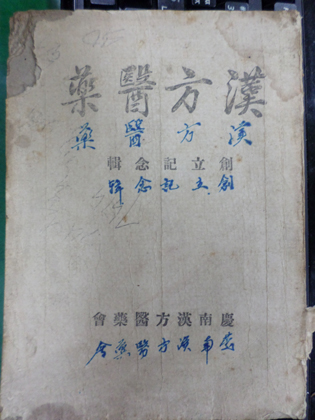 漢方醫藥
漢方醫藥
創立記念輯
創立記念輯
慶南漢方醫藥會
慶南漢方醫藥会